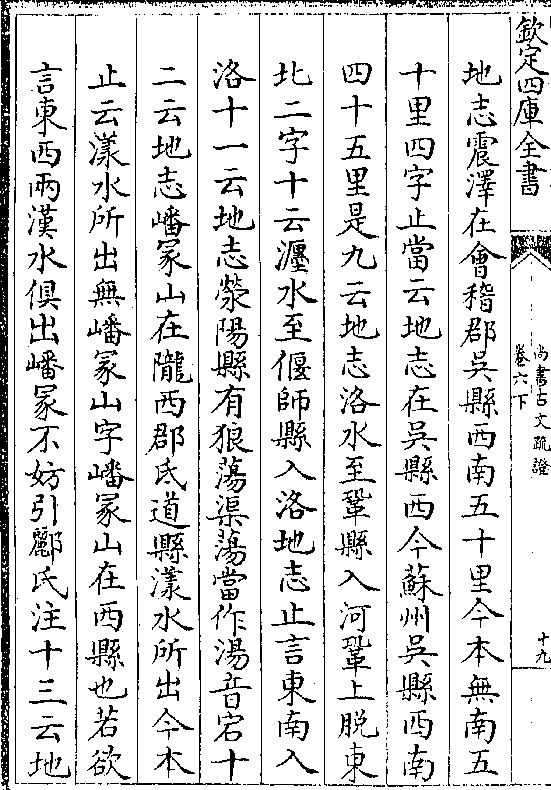 欽定四庫全書
尚書古文疏證
卷六下
十九
地志震澤在會稽郡吳縣西南五十里今本無南五
十里四字止當云地志在吳縣西今蘇州吳縣西南
四十五里是九云地志洛水至鞏縣入河鞏上脫東
北二字十云瀍水至偃師縣入洛地志止言東南入
洛十一云地志滎陽縣有狼蕩渠蕩當作湯音宕十
二云地志嶓冢山在隴西郡氐道縣漾水所出今本
止云漾水所出無嶓冢山字嶓冢山在西縣也若欲
言東西兩漢水俱出嶓冢不妨引酈氏注十三云地